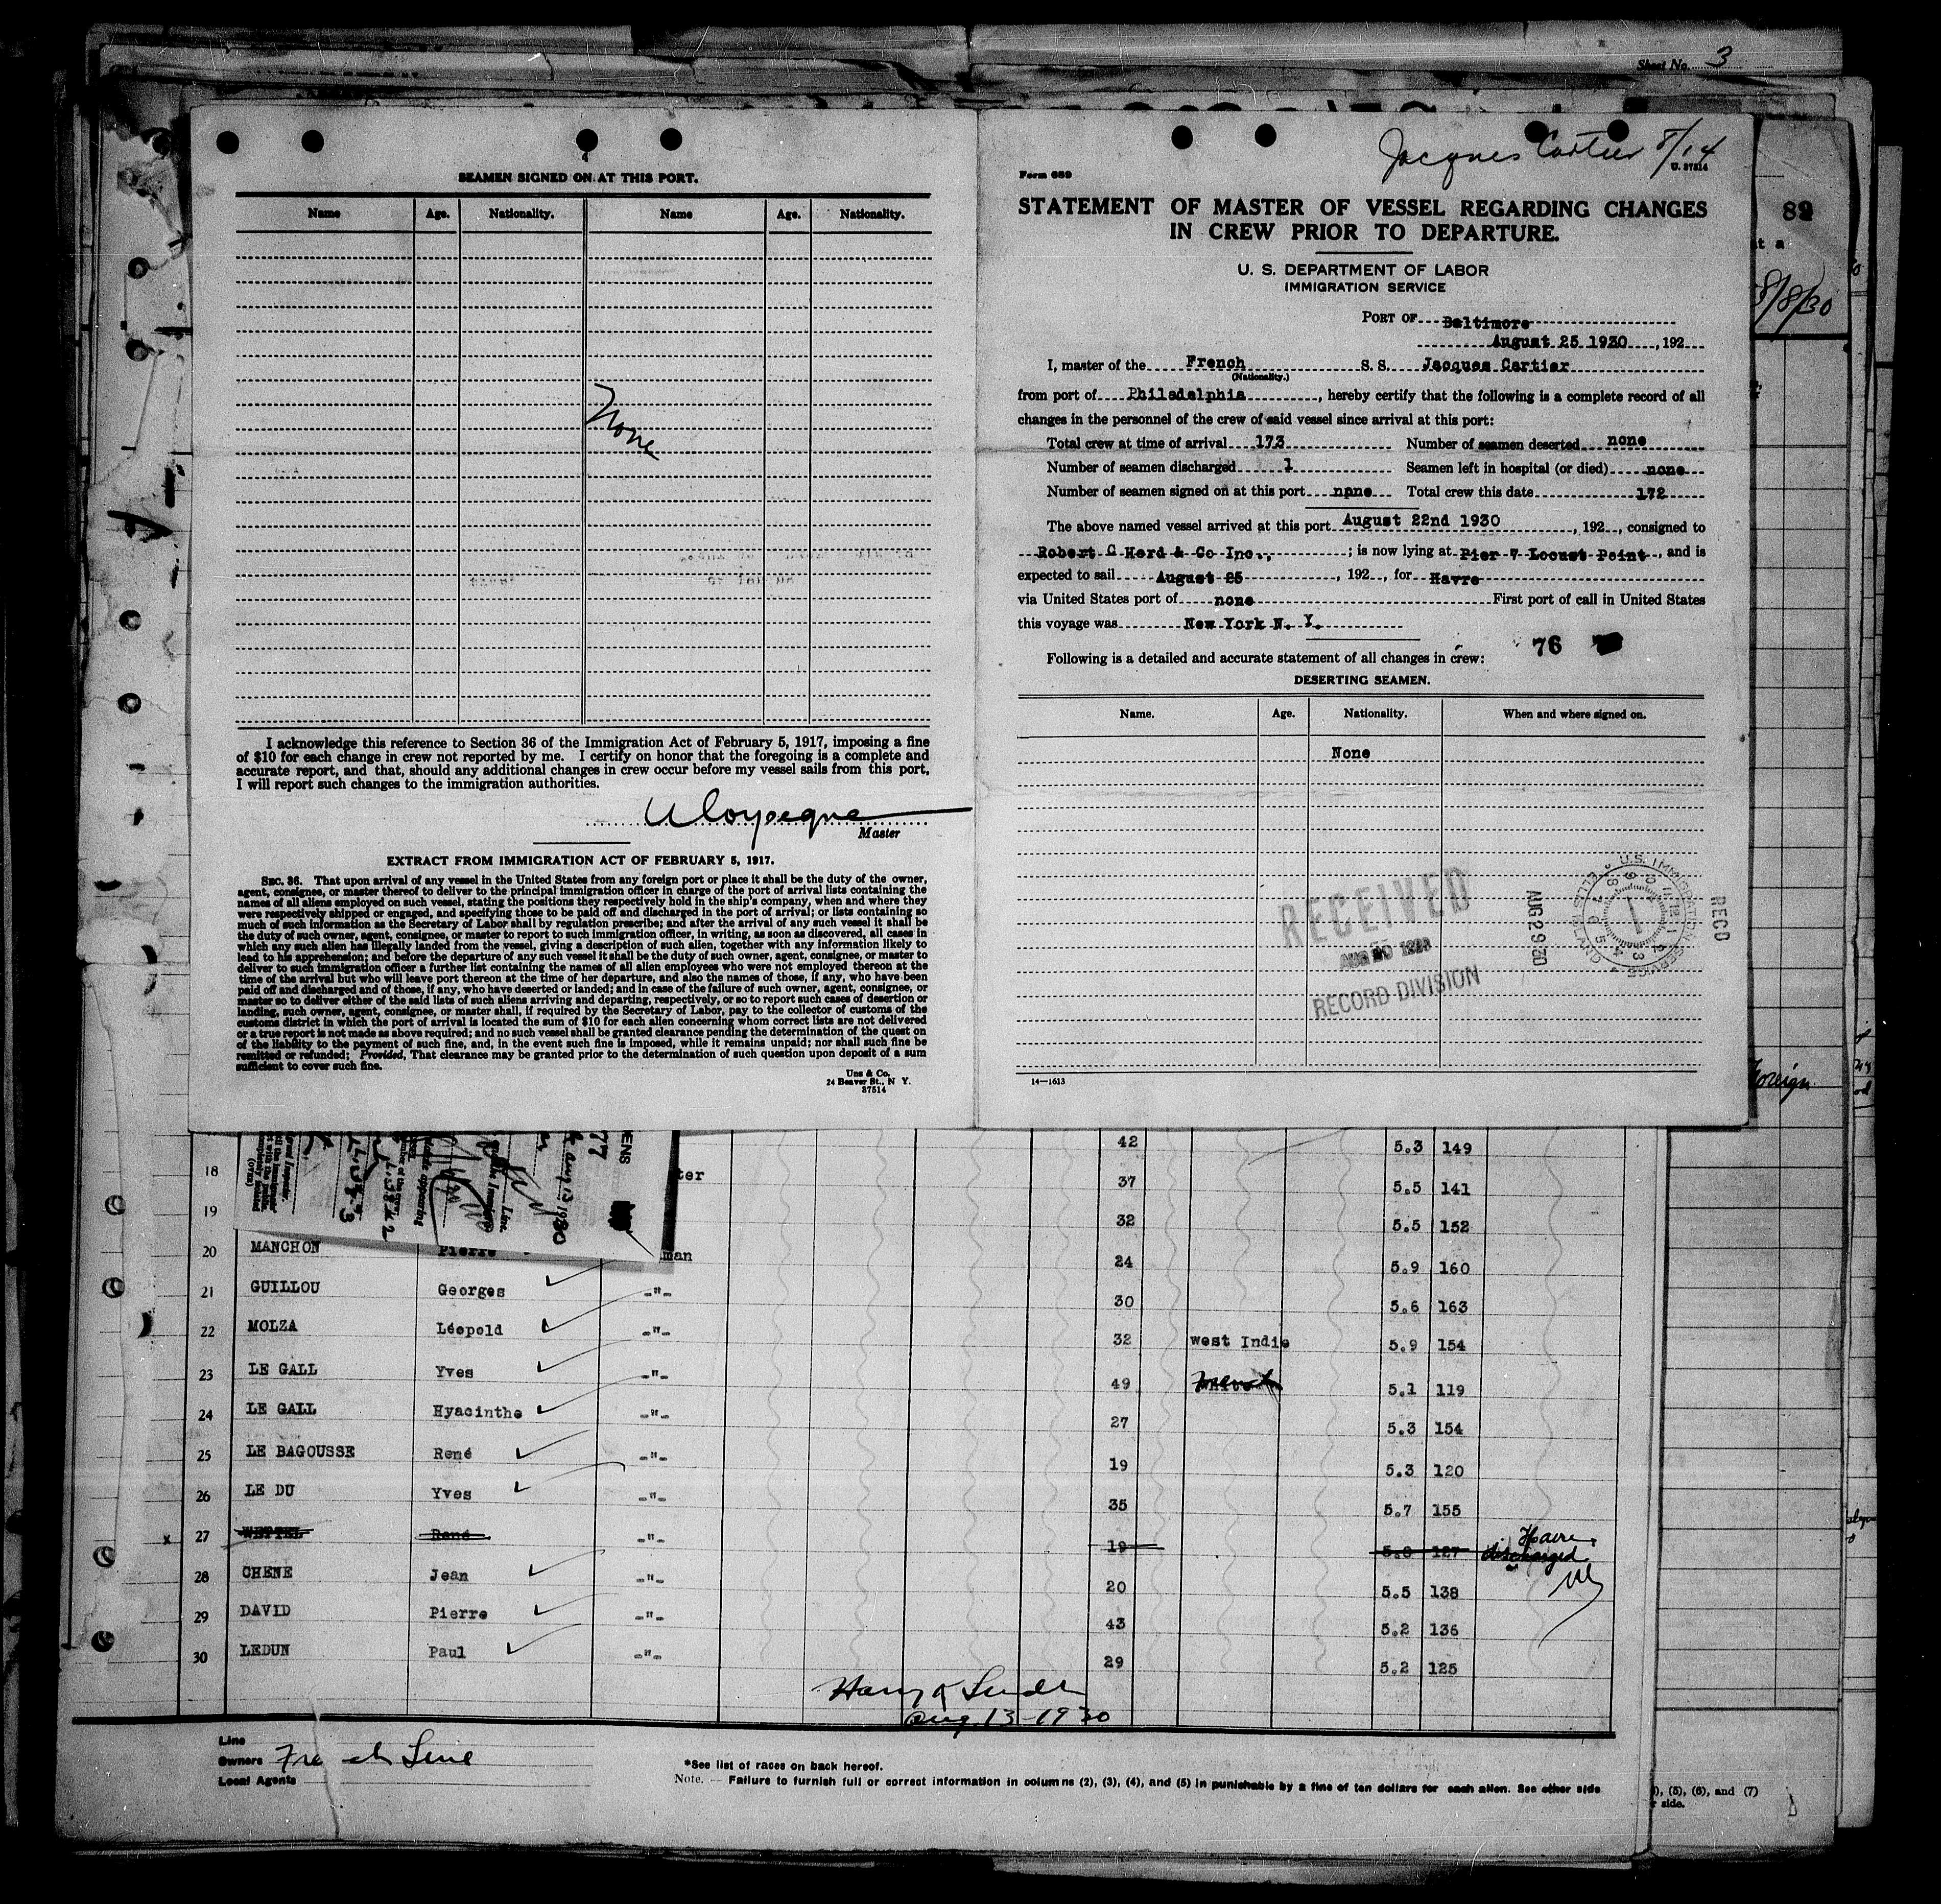 Sheet No. 3
SEAMEN SIGNED ON AT THIS PORT.
Name Age. Nationality. Name Age. Nationality.
None
I acknowledge this reference to Section 36 of the Immigration Act of February 5, 1917, imposing a fine
of $10 for each change in crew not reported by me. I certify on honor that the foregoing is a complete and
accurate report, and that, should any additional changes in crew occur before my vessel sails from this port,
I will report such changes to the immigration authorities.
Master
EXTRACT FROM IMMIGRATION ACT OF FEBRUARY 5, 1917.
SEC. 36. That upon arrival of any vessel in the United States from any foreign port or place it shall be the duty of the owner,
agent, consignee, or master thereof to deliver to the principal immigration officer in charge of the port of arrival lists containing the
names of all aliens employed on such vessel, stating the positions they respectively hold in the ship's company, when and where they
were respectively shipped or engaged, and specifying those to be paid off and discharged in the port of arrival; or lists containing so
much of such information as the Secretary of Labor shall by regulation prescribe; and after the arrival of any such vessel it shall be
the duty of such owner, agent, consignee, or master to report to such immigration officer, in writing, as soon as discovered, all cases in
which any such alien has illegally landed from the vessel, giving a description of such alien, together with any information likely to
lead to his apprehension; and before the departure of any such vessel it shall be the duty of such owner, agent, consignee, or master to
deliver to such immigration officer a further list containing the names of all alien employees who were not employed thereon at the
time of the arrival but who will leave port thereon at the time of her departure, and also the names of those, if any, who have been
paid off and discharged and of those, if any, who have deserted or landed; and in case of the failure of such owner, agent, consignee, or
master so to deliver either of the said lists of such aliens arriving and departing, respectively, or so to report such cases of desertion or
landing, such owner, agent, consignee, or master shall, if required by the Secretary of Labor, pay to the collector of customs of the
customs district in which the port of arrival is located the sum of $10 for each alien concerning whom correct lists are not delivered
or a true report is not made as above required; and no such vessel shall be granted clearance pending the determination of the quest on
of the liability to the payment of such fine, and, in the event such fine is imposed, while it remains unpaid; nor shall such fine be
remitted or refunded; Provided, That clearance may be granted prior to the determination of such question upon deposit of a sum
sufficient to cover such fine.
Unz & Co.
24 Beaver St., N Y.
37514
Jacques Cartier 8/14
Form 689 U. 37514
STATEMENT OF MASTER OF VESSEL REGARDING CHANGES
IN CREW PRIOR TO DEPARTURE.
U. S. DEPARTMENT OF LABOR
IMMIGRATION SERVICE
PORT OF Baltimore
August 25 1930, 192
I, master of the French S. S. Jacques Cartier
(Nationality.)
from port of Philadelphia, hereby certify that the following is a complete record of all
changes in the personnel of the crew of said vessel since arrival at this port:
Total crew at time of arrival 173 Number of seamen deserted none
Number of seamen discharged 1 Seamen left in hospital (or died) none
Number of seamen signed on at this port none Total crew this date 172
The above named vessel arrived at this port August 22nd 1930, 192, consigned to
Robert C Herd & Co Inc.,; is now lying at Pier 7 Locust Point, and is
expected to sail August 25, 192, for Havre
via United States port of none First port of call in United States
this voyage was New York N. Y.
76
Following is a detailed and accurate statement of all changes in crew:
DESERTING SEAMEN.
Name. Age. Nationality. When and where signed on.
None
RECEIVED
RECORD DIVISION
RECD
U.S. IMMIGRATION SERVICE
ELLIS ISLAND
AUG 29 30
14—1613
82
8/8/30
Foreign
42 5.3 149
18 ter 37 5.5 141
19 32 5.5 152
20 MANCHON Pierre man 24 5.9 160
21 GUILLOU Georges -"- 30 5.6 163
22 MOLZA Léopold -"- 32 West Indie 5.9 154
23 LE GALL Yves -"- 49 5.1 119
24 LE GALL Hyacinthe -"- 27 5.3 154
25 LE BAGOUSSE René -"- 19 5.3 120
26 LE DU Yves -"- 35 5.7 155
x 27 WETTEL René -"- 19 5.8 127 Havre discharged
28 CHENE Jean -"- 20 5.5 138
29 DAVID Pierre -"- 43 5.2 136
30 LEDUN Paul -"- 29 5.2 125
Aug. 13-1930
Line
Owners French Line
Local Agents
*See list of races on back hereof.
Note. — Failure to furnish full or correct information in columns (2), (3), (4), and (5) in punishable by a fine of ten dollars for each alien. See other side
), (5), (6), and (7)
r side.